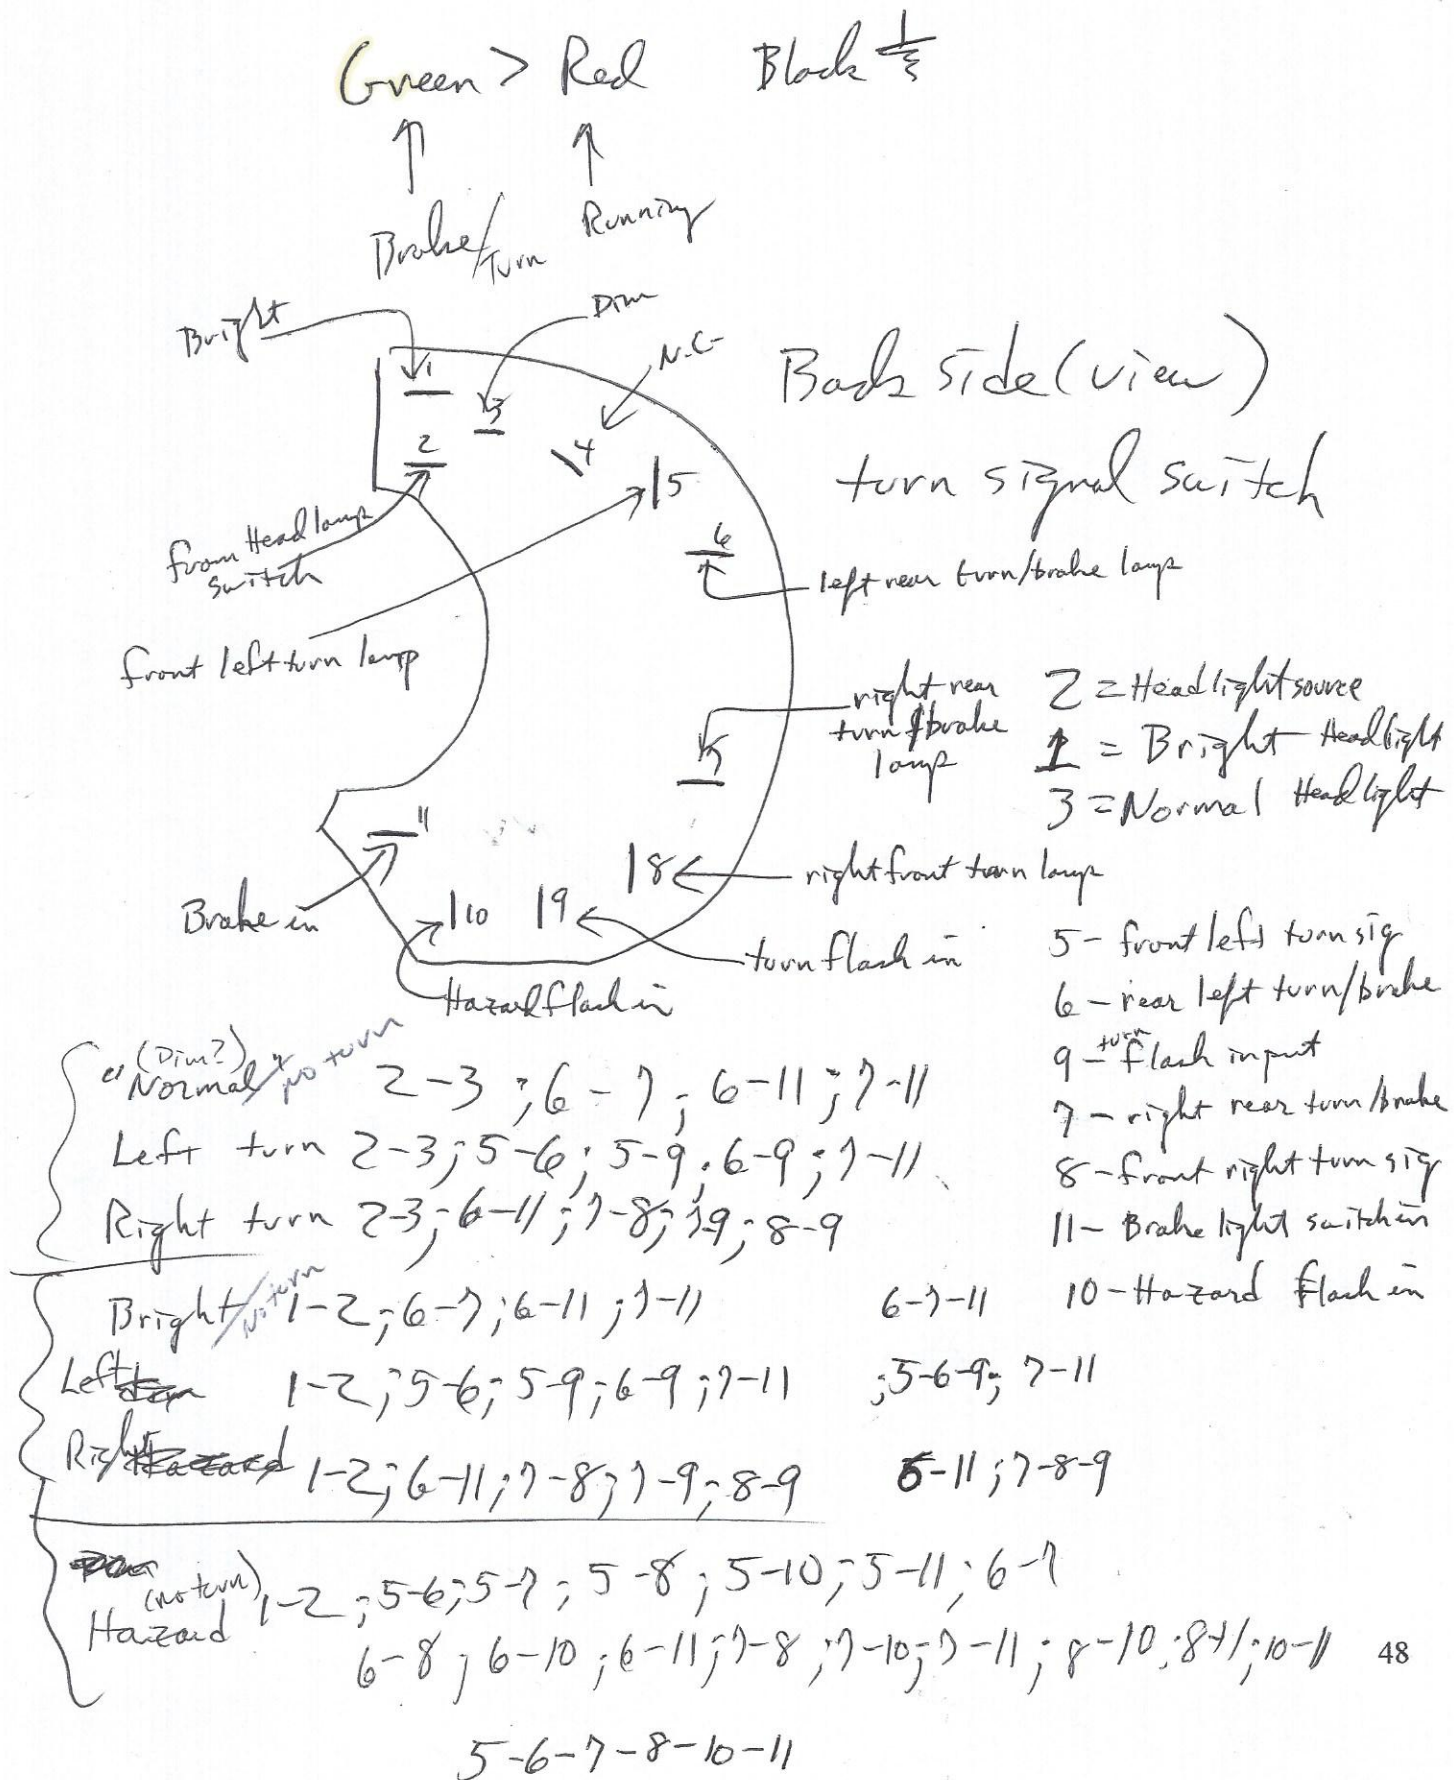 Green > Red Black
Brake/Turn Running
Bright
Dim
N.C.
1
3
2
4
5
6
7
11
8
10 9
Back side (view)
turn signal switch
from Head lamp
switch
front left turn lamp
left rear turn/brake lamp
right rear
turn/brake
lamp
2 = Headlight source
1 = Bright Headlight
3 = Normal Headlight
right front turn lamp
Brake in
turn flash in
Hazard flash in
5 - front left turn sig
6 - rear left turn/brake
9 - turn flash input
7 - right rear turn/brake
8 - front right turn sig
11 - Brake light switch in
10 - Hazard flash in
(Dim?)
"Normal" no turn 2-3 ; 6-7 ; 6-11 ; 7-11
Left turn 2-3 ; 5-6 ; 5-9 ; 6-9 ; 7-11
Right turn 2-3 ; 6-11 ; 7-8 ; 7-9 ; 8-9
Bright/No turn 1-2 ; 6-7 ; 6-11 ; 7-11 6-7-11
Left 1-2 ; 5-6 ; 5-9 ; 6-9 ; 7-11 ; 5-6-9 ; 7-11
Right 1-2 ; 6-11 ; 7-8 ; 7-9 ; 8-9 6-11 ; 7-8-9
(no turn)
Hazard 1-2 ; 5-6 ; 5-7 ; 5-8 ; 5-10 ; 5-11 ; 6-7
6-8 ; 6-10 ; 6-11 ; 7-8 ; 7-10 ; 7-11 ; 8-10 ; 8-11 ; 10-11
48
5-6-7-8-10-11